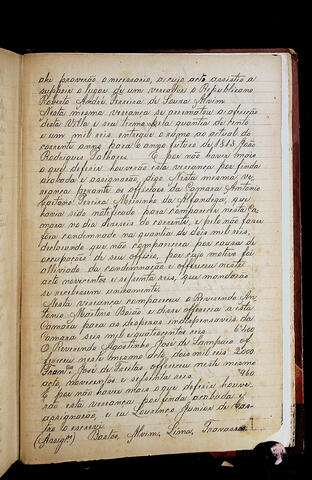 ahi proverão o necessario, a cujo acto assistio a
suppoir o lugar de um vereador o Republicano
Roberto André Ferreira de Souza Alvim
Nesta mesma vereança se arrematou a afeição
desta Villa e seu termo pela quantia de cento
e um mil reis, entregue o ramo ao actual do
corrente anno para o anno futuro de 1813 João
Rodrigues Palhares. E por não haver mais
o que deferir houverão esta vereança por finda
acabada e assignarão, digo Nesta mesma ve-
reança perante os officiaes da Camara Antonio
Caetano Pereira Meirinho da Alfandega, que
havia sido notificado para comparecer nesta Ca-
mara no dia dezseis do corrente, e pelo não fazer
fôra condemnado na quantia de dois mil reis,
declarando que não comparecera por causa de
occupações de seu officio, por cujo motivo foi
alliviado da condemnação e offereceu neste
acto novecentos e sessenta reis, que mandarão
se recebessem unicamente.
Nesta vereança compareceu o Reverendo An-
tonio Martins Baião e disse offerecia a esta
Camara para as despezas indispensaveis da
Camara seis mil e quatrocentos reis 6400
O Reverendo Agostinho José de Sampaio of-
fereceu neste mesmo acto, dois mil reis 2000
Fran.co José de Freitas offereceu neste mesmo
acto, novecentos e sessenta reis. 960
E por não haver mais o que deferir houve-
rão esta vereança por finda acabada e
assignarão, e eu Lourenço Junior de Cas-
tro, o escrevi
(Assig.os) Bastos, Alvim, Lima, Travassos.